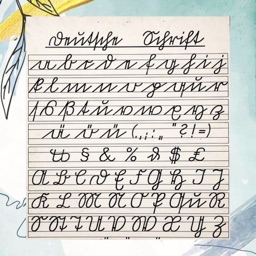 Deutsche Schrift
a b c d e f g h i j
k l m n o p q u r
ſ s ß t u v w x y z
ä ö ü ( . , ; : „ “ ? ! = )
& § & % $ £
A B C D E F G H I J
K L M N O P Qu R
S St T U V W X Y Z